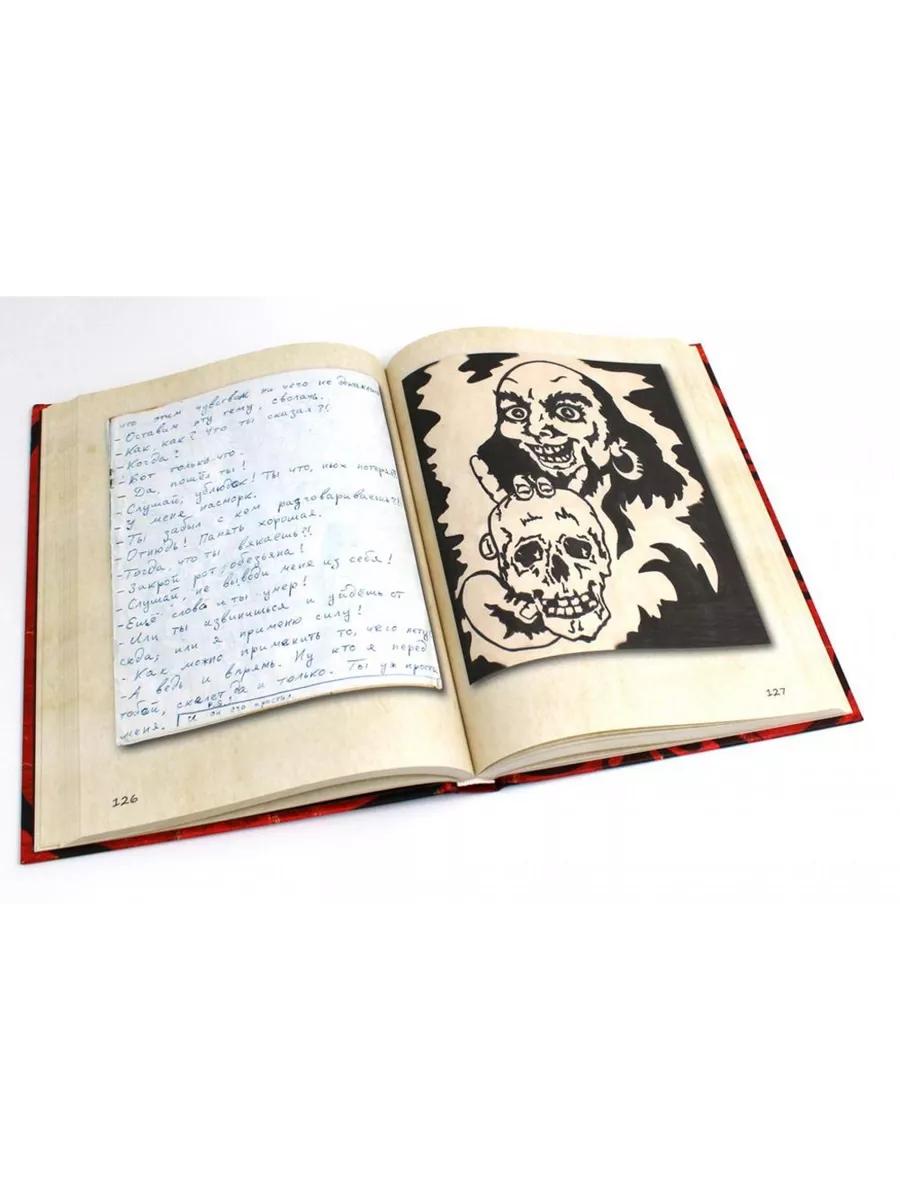 что этим чувствам ни чего не докажешь
- Оставим эту тему, сволочь.
- Как, как? Что ты сказал?!
- Когда?
- Вот только-что.
- Да, пошёл ты!
- Слушай, ублюдок! Ты что, нюх потерял?!
- У меня насморк.
- Ты забыл с кем разговариваешь?!
- Отнюдь! Память хорошая.
- Тогда, что ты вякаешь?!
- Закрой рот, обезьяна!
- Слушай, не выводи меня из себя!
- Ещё слова и ты умер!
- Или ты извинишься и уйдёшь от
сюда, или я применю силу!
- Как можно применить то, чего нету?
- А ведь и впрямь. Ну кто я перед
тобой, скелет да и только. Ты уж прости
меня. И он его простил
126
127